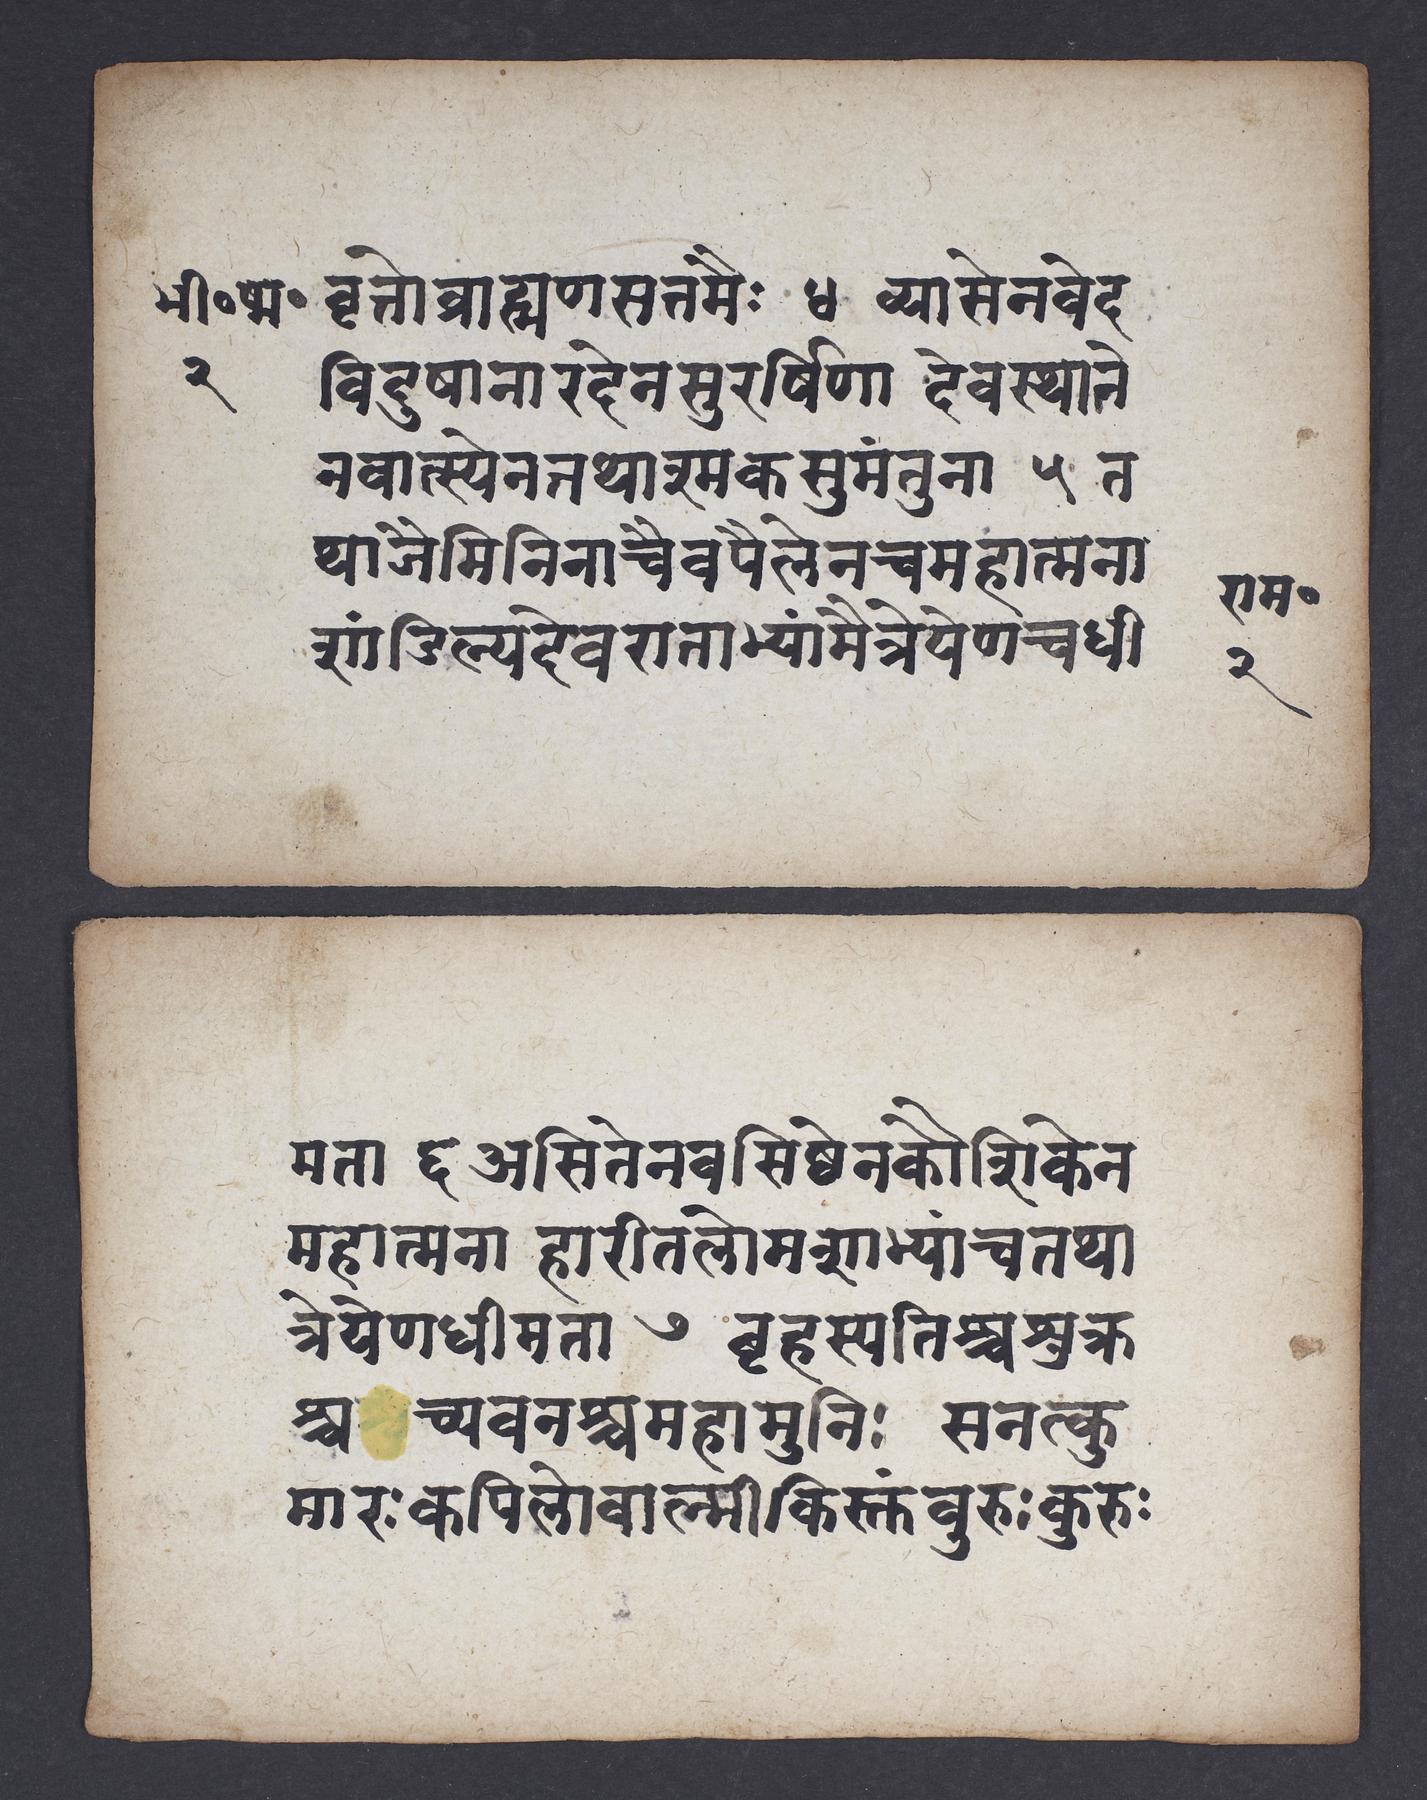 भी॰ष्म॰ वृत्तोब्राह्मणसत्तमैः ४ व्यासेनवेद
२ विदुषानारदेनसुरर्षिणा देवस्थाने
नवात्स्येनतथाश्मकसुमंतुना ५ त
थाजैमिनिनाचैवपैलेनचमहात्मना
शांडिल्यदेवराताभ्यांमैत्रेयेणचधी
राम॰
२
मता ६ असितेनवसिष्ठेनकौशिकेन
महात्मना हारीतलोमशाभ्यांचतथा
त्रेयेणधीमता ७ बृहस्पतिश्चशुक्र
श्च च्यवनश्चमहामुनिः सनत्कु
मारःकपिलोवाल्मीकिस्तंबुरुःकुरुः